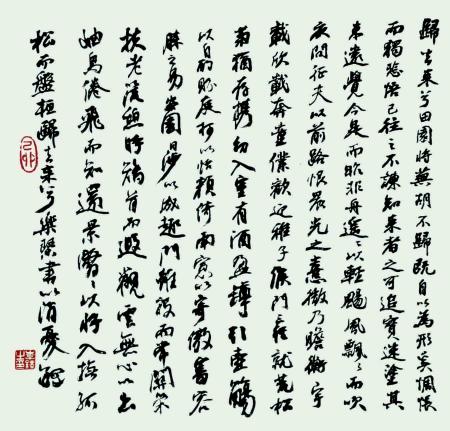 歸去来兮田園將蕪胡不歸既自以為形矣惆悵
而獨悲悟已往之不諫知来者之可追寔迷塗其
未遠覺今是而昨非舟遥々以輕颺風飄々而吹
衣問征夫以前路恨晨光之熹微乃瞻衡宇
載欣載奔童僕歡迎稚子候門三徑就荒松
菊猶存携幼入室有酒盈罇引壺觴
以自酌眄庭柯以怡顔倚南窓以寄傲審容
膝之易安園日涉以成趣門雖設而常關策
扶老流憩時矯首而遐觀雲無心以出
岫鳥倦飛而知還景翳々以將入撫孤
松而盤桓歸去来兮樂琴書以消憂